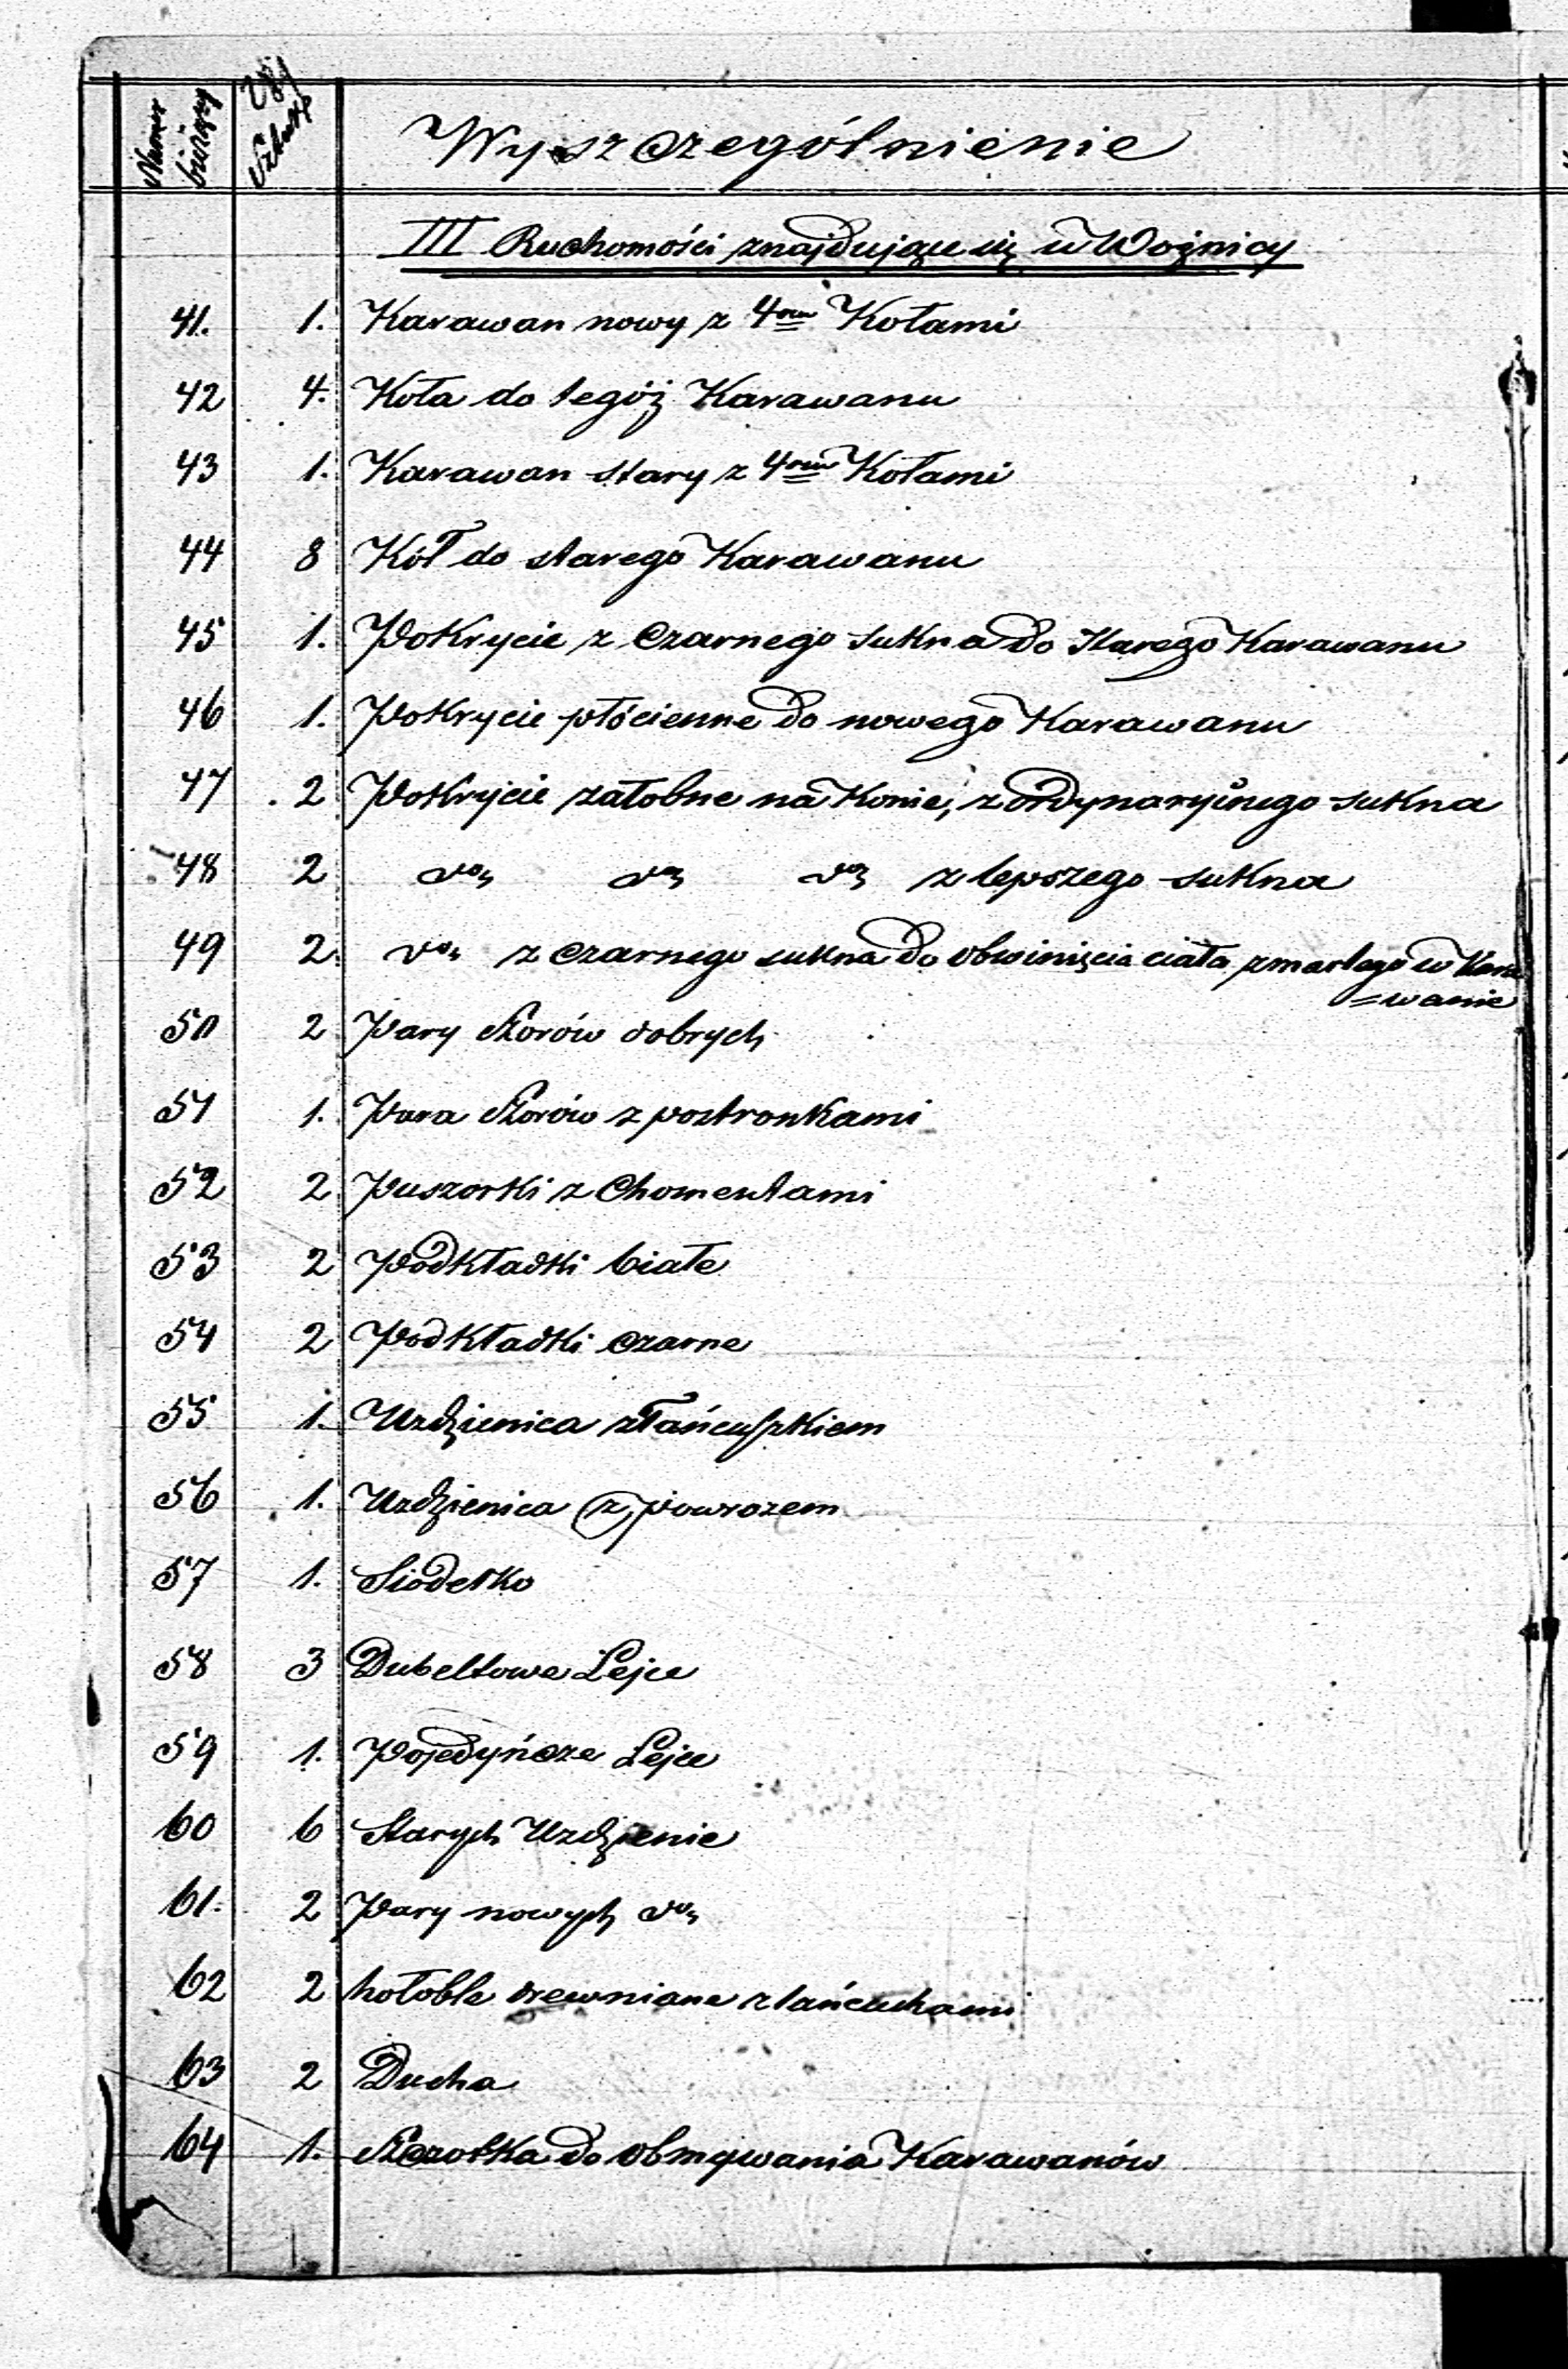 Numer bieżący
Wyszczególnienie
III Ruchomości znajdujące się w Woźnicy
41. 1. Karawan nowy z 4rma Kołami
42 4. Koła do tegóż Karawanu
43 1. Karawan stary z 4rma Kołami
44 8 Kół do starego Karawanu
45 1. Pokrycie z czarnego sukna do starego Karawanu
46 1. Pokrycie płócienne do nowego Karawanu
47 2 Pokrycie załobne na Konie, z ordynaryinego sukna
48 2 do do do z lepszego sukna
49 2 do z czarnego sukna do obwinięcia ciała zmarłego w Kara
=wanie
50 2 Pary Szorów dobrych
51 1. Para Szorów z postronkami
52 2 Puszorki z Chomentami
53 2 Podkładki białe
54 2 Podkładki czarne
55 1. Uzdzienica z łańcuszkiem
56 1. Uzdzienica z powrozem
57 1. Siodełko
58 3 Dubeltowe Lejce
59 1. Pojedyńcze Lejce
60 6 Starych Uzdzienic
61. 2 Pary nowych do
62 2 hołoble drewniane z łańcuchami
63 2 Ducha
64 1. Szczotka do obmywania Karawanów